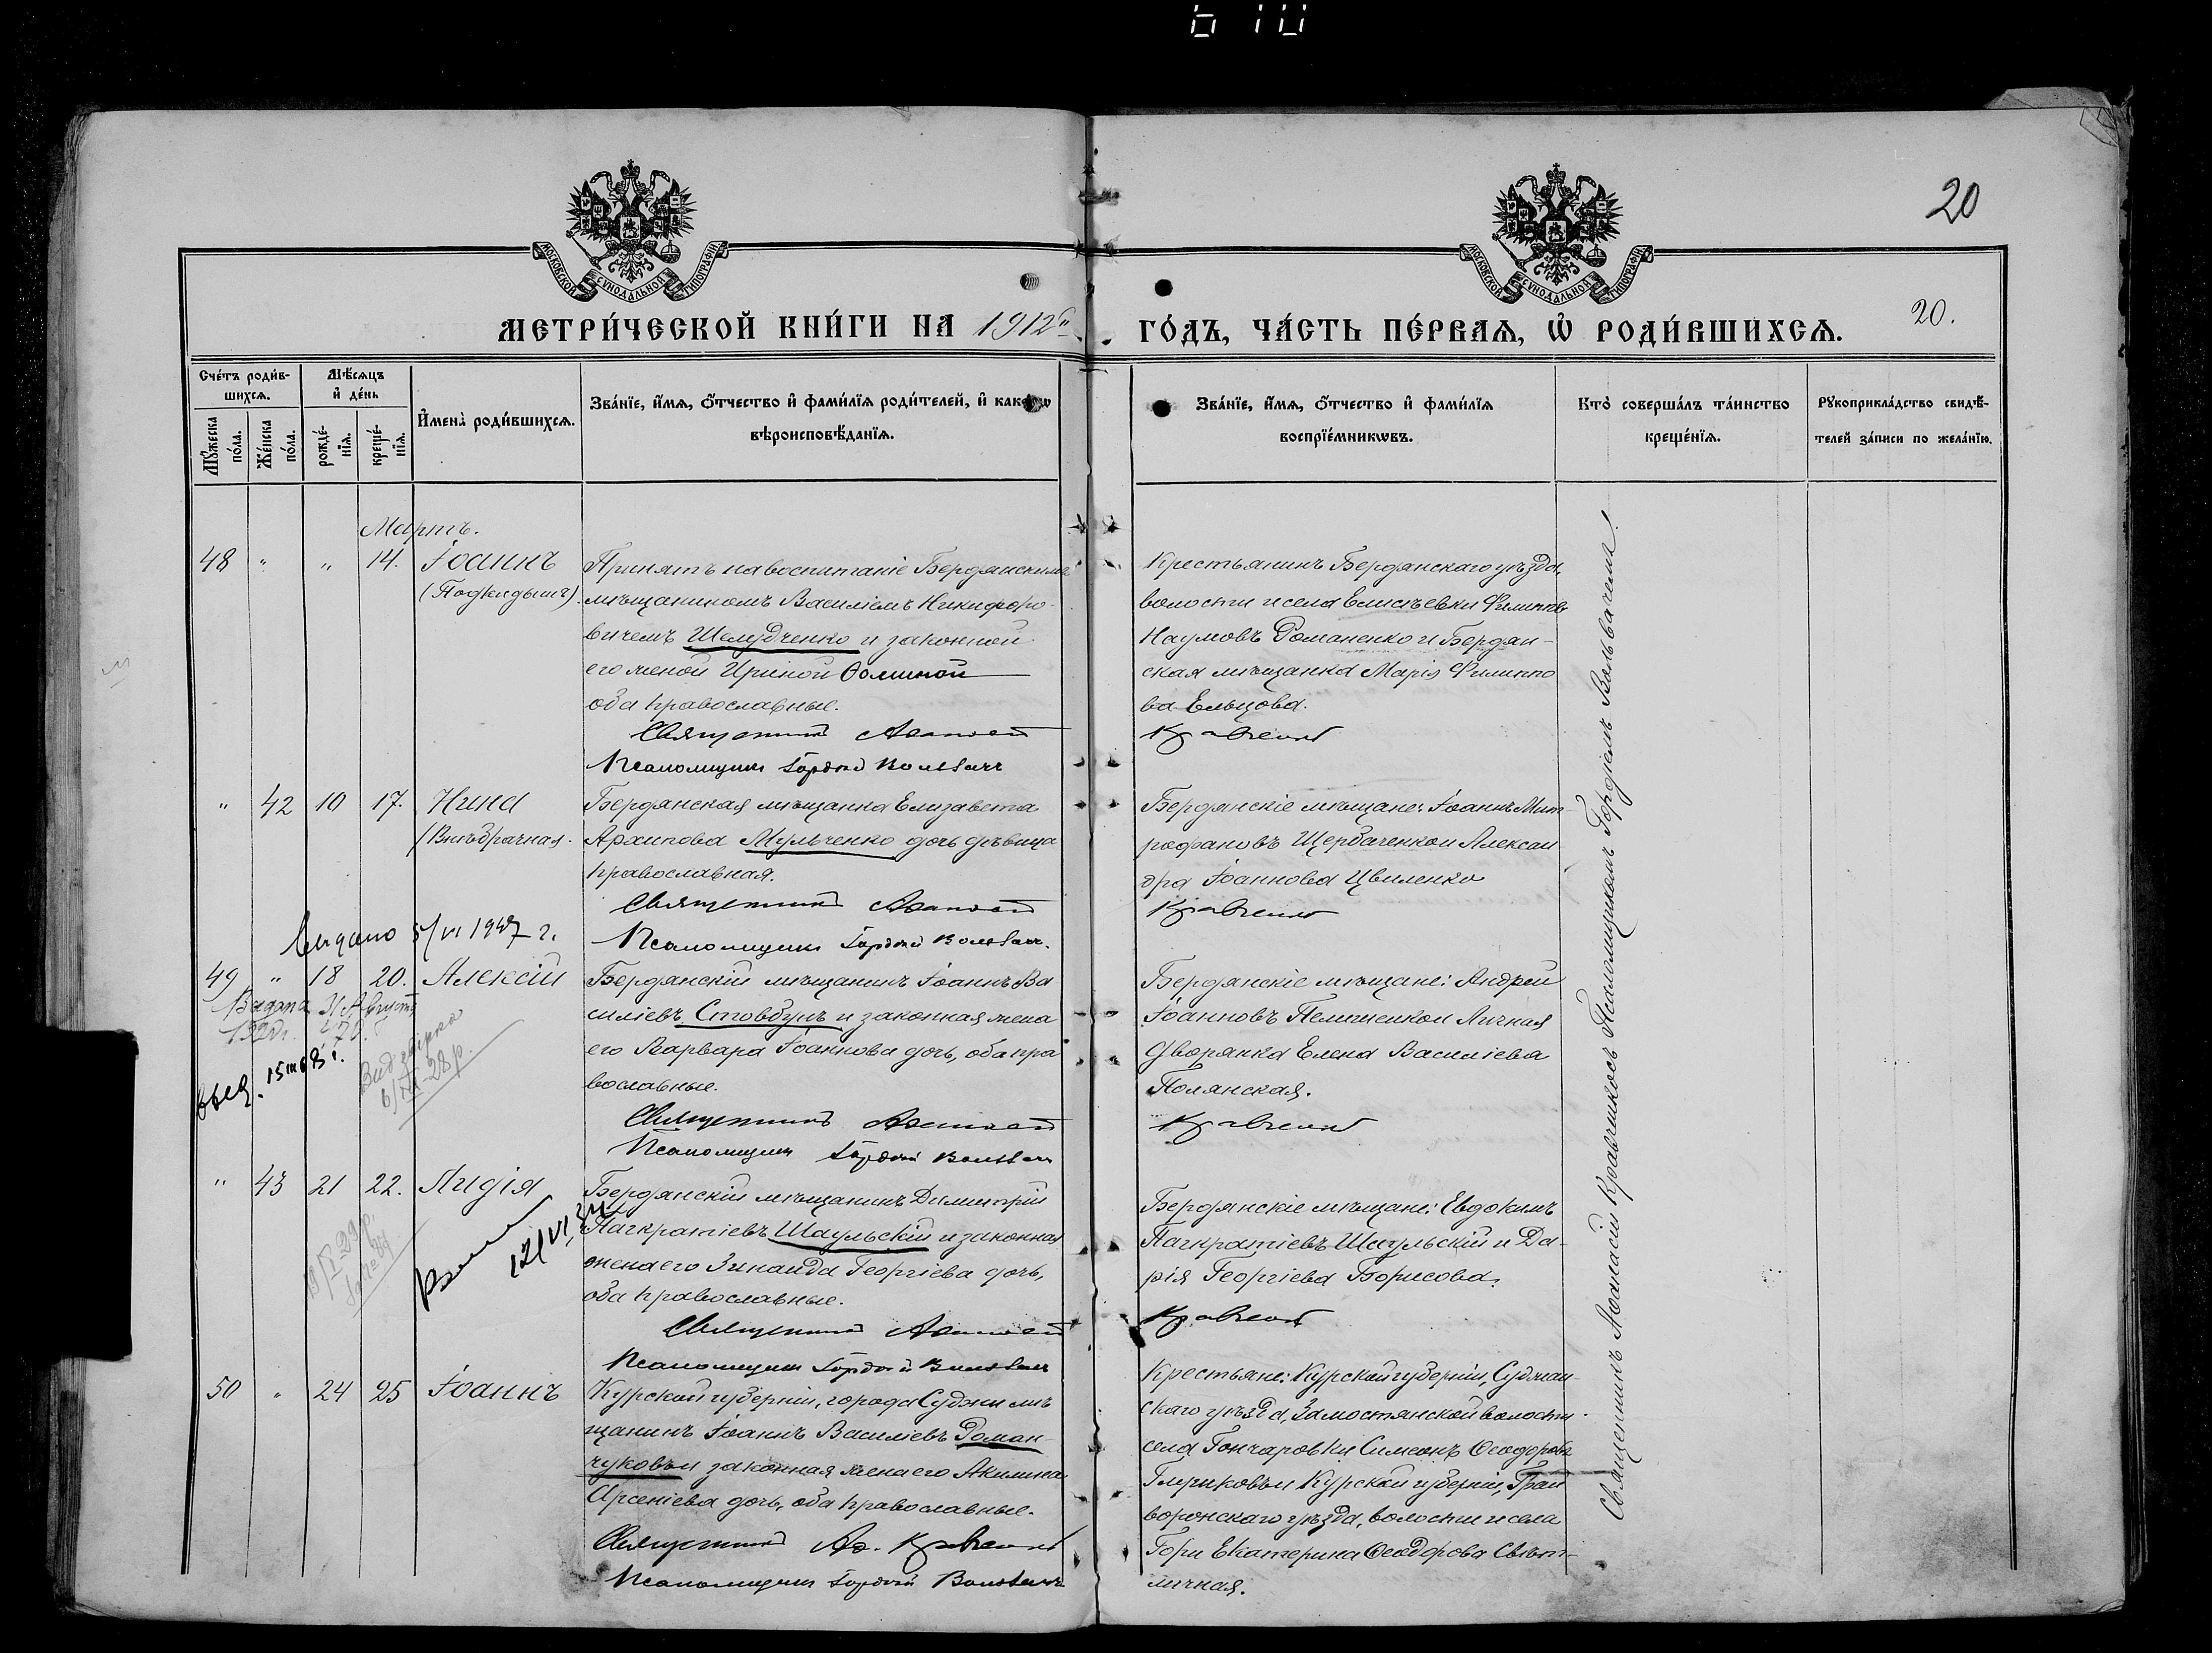 20
МОСКОВСКОЙ СѴНОДАЛЬНОЙ ТИПОГРАФІИ
МОСКОВСКОЙ СѴНОДАЛЬНОЙ ТИПОГРАФІИ
МЕТРИ́ЧЕСКОЙ КНИ́ГИ НА 1912й ГО́ДЪ, ЧА́СТЬ ПЕ́РВАѦ, Ѡ҆ РОДИ́ВШИХСѦ.
20.
Сче́тъ роди́в-
шихсѧ.
Мѣ́сѧцъ
и҆ де́нь
Мꙋ́жеска
по́ла.
Же́нска
по́ла.
рожде́-
нїѧ.
креще́-
нїѧ.
И҆мена̀ роди́вшихсѧ.
Зва́нїе, и҆́мѧ, ѻ҆́тчество и҆ фами́лїѧ роди́телей, и҆ како́гѡ
вѣроисповѣ́данїѧ.
Зва́нїе, и҆́мѧ, ѻ҆́тчество и҆ фами́лїѧ
воспрїе́мникѡвъ.
Кто̀ соверша́лъ та́инство
креще́нїѧ.
Рꙋкоприкла́дство свидѣ́-
телей за́писи по жела́нїю.
Мартъ.
48 " " 14. Іоаннъ
(Подкидышъ).
Принятъ на воспитаніе Бердянскимъ
мѣщаниномъ Василіемъ Никифоро-
вичемъ Шелудченко и законной
его женой Ириной Ѳоминой
оба православные.
Священникъ
Псаломщикъ Гордій Вольвач
Крестьянинъ Бердянскаго уѣзда,
волости и села Елисѣевки Филиппъ
Наумовъ Романенко и Бердян-
ская мѣщанка Марія Филиппо
ва Ельцова.
Кравченко
" 42 10 17. Нина
(Внѣбрачная.
Бердянская мѣщанка Елизавета
Архипова Мульченко дочь дѣвица
православная.
Священникъ
Псаломщикъ Гордій Вольвач.
Бердянскіе мѣщане: Іоаннъ Мит-
рофановъ Щербаченко и Алексан
дра Іоаннова Цвиленко
Кравченко
5/VI 1947 г.
49 " 18 20. Алексій
Выдана 31 Августа
Выд. 15
Видана
6/ 28 р.
Бердянскій мѣщанинъ Іоаннъ Ва
силіевъ Стовбунъ и законная жена
его Варвара Іоаннова дочь, оба пра
вославные.
Священникъ
Псаломщикъ Гордій Вольвач
Бердянскіе мѣщане: Андрей
Іоанновъ Пелешенко и Личная
Дворянка Елена Василіева
Полянская.
Кравченко
" 43 21 22. Лидія
12/VI
Бердянскій мѣщанинъ Димитрій
Панкратіевъ Шаульскій и законная
жена его Зинаида Георгіева дочь,
оба православные.
Священникъ
Псаломщикъ Гордій Вольвач
Бердянскіе мѣщане: Евдокимъ
Панкратіевъ Шаульскій и Да-
рія Георгіева Борисова.
Кравченко
50 " 24 25 Іоаннъ
Курской губерніи, города Суджи мѣ
щанинъ Іоаннъ Василіевъ Роман-
чуковъ и законная жена его Акилина
Арсеніева дочь, оба православные.
Священникъ Аѳ. Кравченко
Псаломщикъ Гордій Вольвачъ
Крестьяне: Курской губерніи, Суджан-
скаго уѣзда, Замостянской волости
села Гончаровки Симеонъ Ѳеодоровъ
и Курской губерніи, Грай
воронскаго уѣзда, волости и села
Екатерина Ѳеодорова Свѣт-
личная.
Священникъ Аѳанасій Кравченко съ Псаломщикомъ Гордіемъ Вольвачемъ.